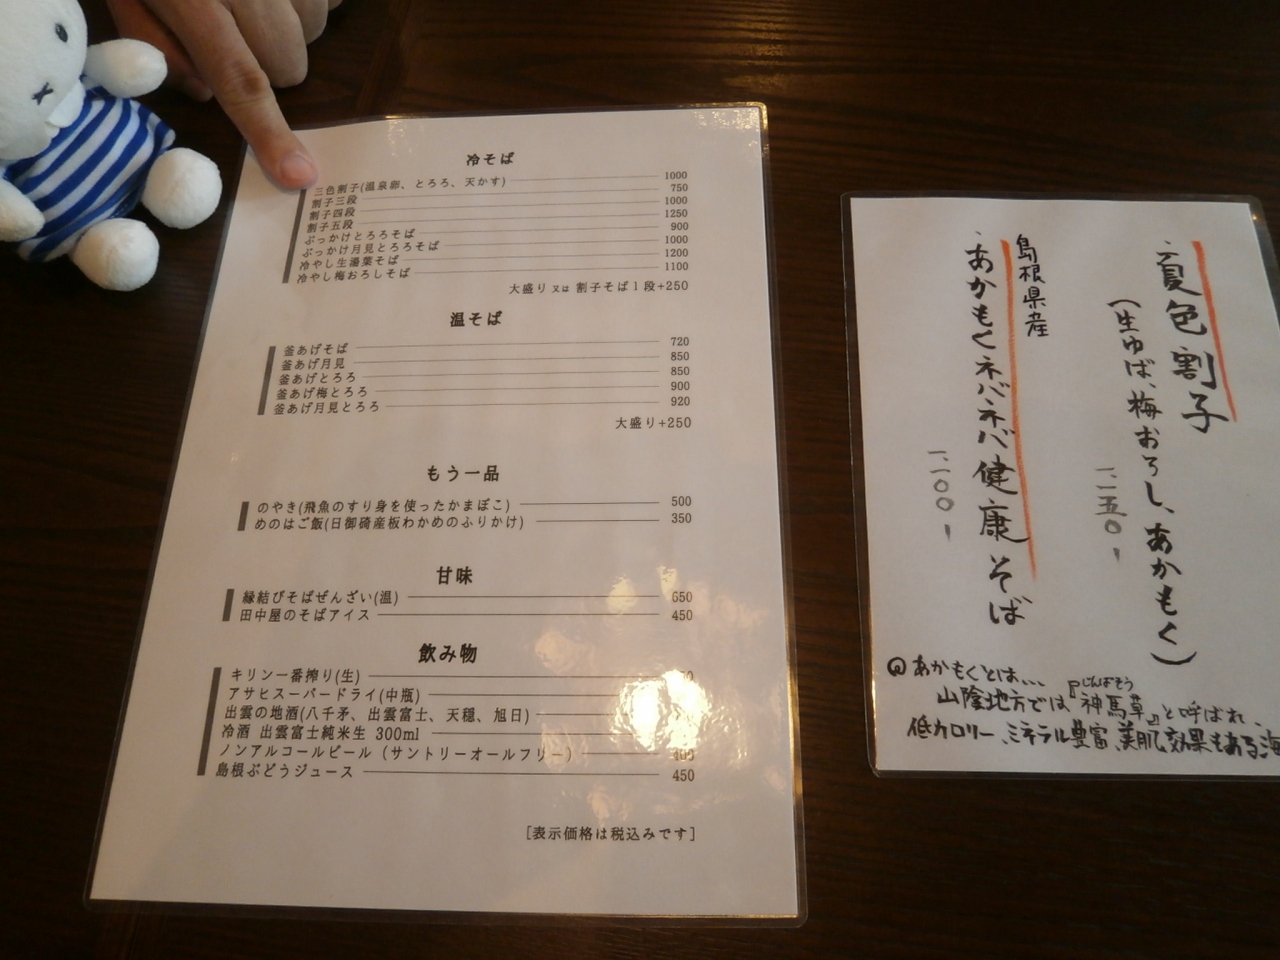 冷そば
三色割子(温泉卵、とろろ、天かす) 1000
割子三段 750
割子四段 1000
割子五段 1250
ぶっかけとろろそば 900
ぶっかけ月見とろろそば 1000
冷やし生湯葉そば 1200
冷やし梅おろしそば 1100
大盛り又は 割子そば1段+250
温そば
釜あげそば 720
釜あげ月見 850
釜あげとろろ 850
釜あげ梅とろろ 900
釜あげ月見とろろ 920
大盛り+250
もう一品
のやき(飛魚のすり身を使ったかまぼこ) 500
めのはご飯(日御碕産板わかめのふりかけ) 350
甘味
縁結びそばぜんざい(温) 650
田中屋のそばアイス 450
飲み物
キリン一番搾り(生)
アサヒスーパードライ(中瓶)
出雲の地酒(八千矛、出雲富士、天穏、旭日)
冷酒 出雲富士純米生 300ml
ノンアルコールビール(サントリーオールフリー) 400
島根ぶどうジュース 450
[表示価格は税込みです]
夏色割子
(生ゆば、梅おろし、あかもく)
一、二五〇-
島根県産
あかもくネバネバ健康そば
一、一〇〇-
あかもくとは...
山陰地方では『神馬草』と呼ばれ、
じんばそう
低カロリー、ミネラル豊富、美肌効果もある海